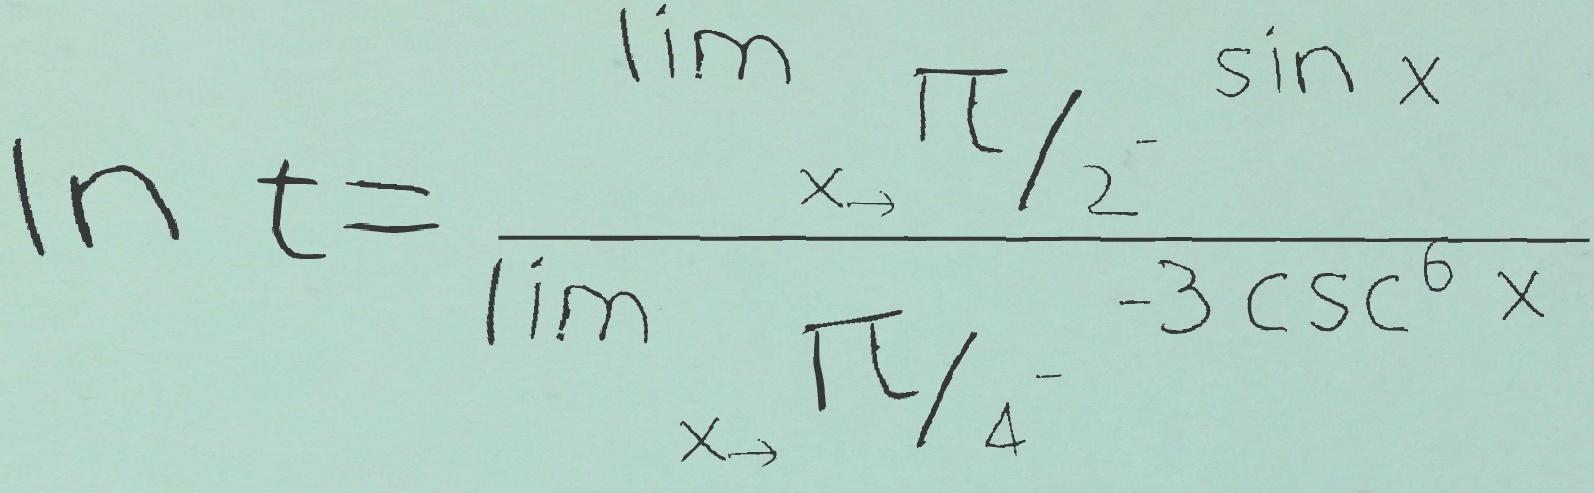 \ln t = \frac{\lim_{x \to \pi/2^-} \sin x}{\lim_{x \to \pi/4^-} -3 \csc^6 x}